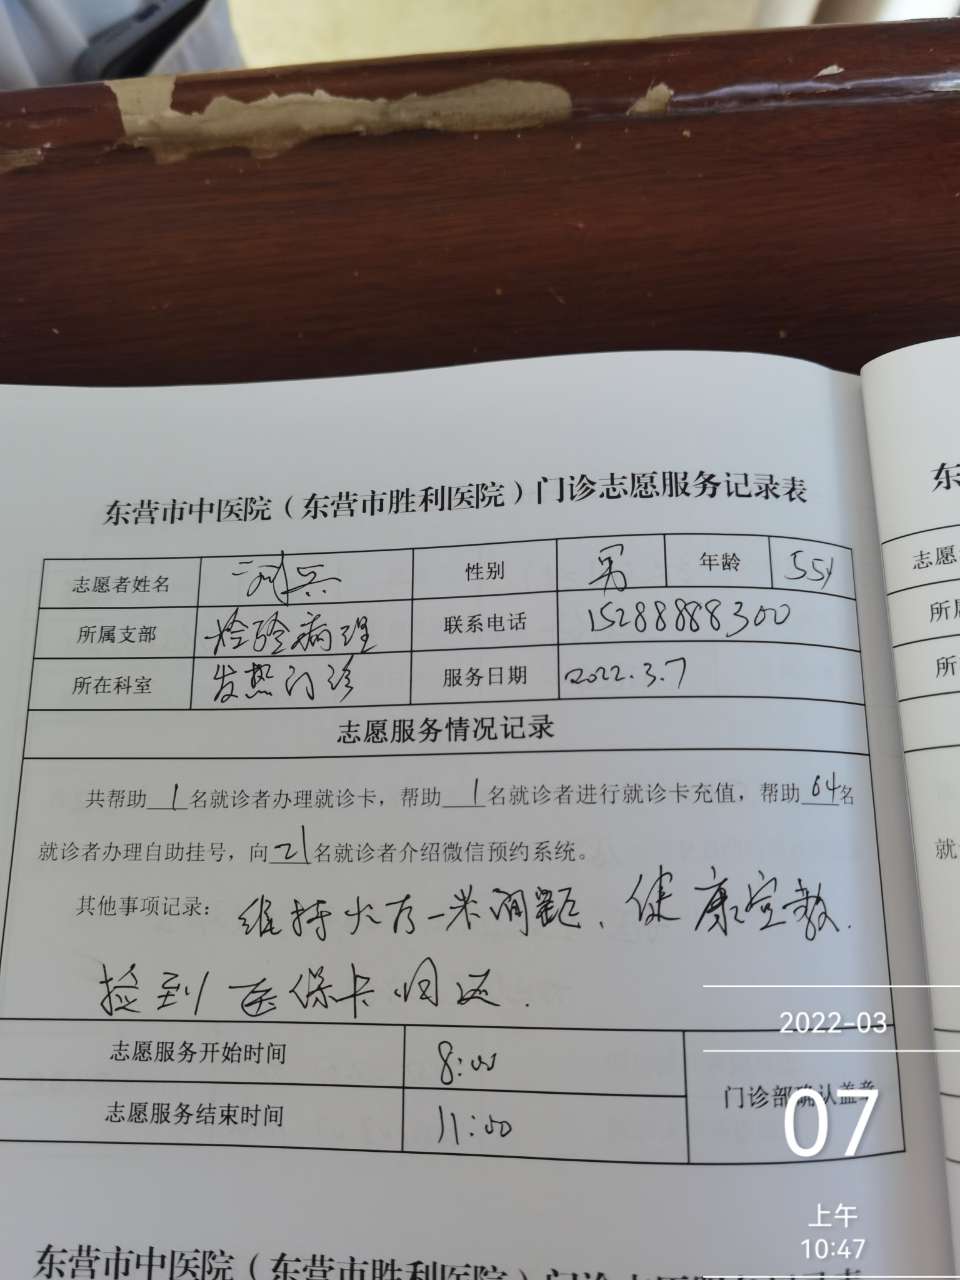 东营市中医院（东营市胜利医院）门诊志愿服务记录表
志愿者姓名 性别 男 年龄 55岁
所属支部 检验病理 联系电话 15288888300
所在科室 发热门诊 服务日期 2022.3.7
志愿服务情况记录
共帮助1名就诊者办理就诊卡，帮助1名就诊者进行就诊卡充值，帮助64名
就诊者办理自助挂号，向21名就诊者介绍微信预约系统。
其他事项记录：维持 一米间距、健康宣教.
捡到医保卡归还.
志愿服务开始时间 8:00
门诊部确认盖章
志愿服务结束时间 11:00
东营市中医院（东营市胜利医院）门诊志愿服务记录表
东
志愿
所属
所
就
2022-03
07
上午
10:47